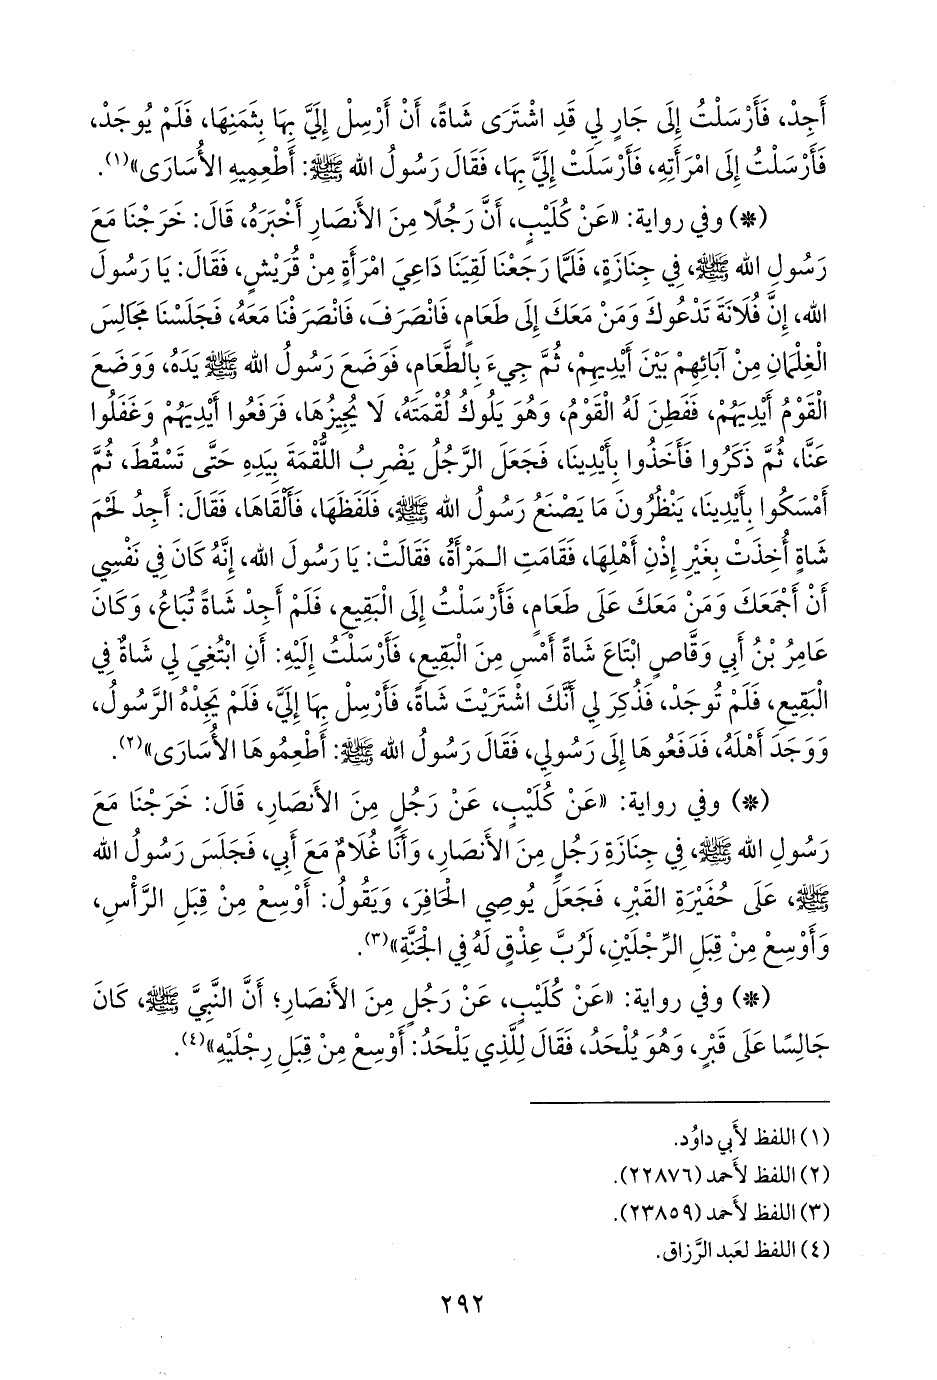 أَجِدْ، فَأَرْسَلْتُ إِلَى جَارٍ لِي قَدِ اشْتَرَى شَاةً، أَنْ أَرْسِلْ إِلَيَّ بِهَا بِثَمَنِهَا، فَلَمْ يُوجَدْ،
فَأَرْسَلْتُ إِلَى امْرَأَتِهِ، فَأَرْسَلَتْ إِلَيَّ بِهَا، فَقَالَ رَسُولُ الله ﷺ: أَطْعِمِيهِ الأُسَارَى»(١).
(*) وفي رواية: «عَنْ كُلَيْبٍ، أَنَّ رَجُلًا مِنَ الأَنصَارِ أَخْبَرَهُ، قَالَ: خَرَجْنَا مَعَ
رَسُولِ الله ﷺ، فِي جِنَازَةٍ، فَلَمَّا رَجَعْنَا لَقِيَنَا دَاعِيَ امْرَأَةٍ مِنْ قُرَيْشٍ، فَقَالَ: يَا رَسُولَ
الله، إِنَّ فُلَانَةَ تَدْعُوكَ وَمَنْ مَعَكَ إِلَى طَعَامٍ، فَانْصَرَفَ، فَانْصَرَفْنَا مَعَهُ، فَجَلَسْنَا مَجَالِسَ
الْغِلْمَانِ مِنْ آبَائِهِمْ بَيْنَ أَيْدِيهِمْ، ثُمَّ جِيءَ بِالطَّعَامِ، فَوَضَعَ رَسُولُ الله ﷺ يَدَهُ، وَوَضَعَ
الْقَوْمُ أَيْدِيَهُمْ، فَفَطِنَ لَهُ الْقَوْمُ، وَهُوَ يَلُوكُ لُقْمَتَهُ، لَا يُجِيزُهَا، فَرَفَعُوا أَيْدِيَهُمْ وَغَفَلُوا
عَنَّا، ثُمَّ ذَكَرُوا فَأَخَذُوا بِأَيْدِينَا، فَجَعَلَ الرَّجُلُ يَضْرِبُ اللُّقْمَةَ بِيَدِهِ حَتَّى تَسْقُطَ، ثُمَّ
أَمْسَكُوا بِأَيْدِينَا، يَنْظُرُونَ مَا يَصْنَعُ رَسُولُ الله ﷺ، فَلَفَظَهَا، فَأَلْقَاهَا، فَقَالَ: أَجِدُ لَحْمَ
شَاةٍ أُخِذَتْ بِغَيْرِ إِذْنِ أَهْلِهَا، فَقَامَتِ الـمَرْأَةُ، فَقَالَتْ: يَا رَسُولَ الله، إِنَّهُ كَانَ فِي نَفْسِي
أَنْ أَجْمَعَكَ وَمَنْ مَعَكَ عَلَى طَعَامٍ، فَأَرْسَلْتُ إِلَى الْبَقِيعِ، فَلَمْ أَجِدْ شَاةً تُبَاعُ، وَكَانَ
عَامِرُ بْنُ أَبِي وَقَّاصٍ ابْتَاعَ شَاةً أَمْسِ مِنَ الْبَقِيعِ، فَأَرْسَلْتُ إِلَيْهِ: أَنِ ابْتُغِيَ لِي شَاةٌ فِي
الْبَقِيعِ، فَلَمْ تُوجَدْ، فَذُكِرَ لِي أَنَّكَ اشْتَرَيْتَ شَاةً، فَأَرْسِلْ بِهَا إِلَيَّ، فَلَمْ يَجِدْهُ الرَّسُولُ،
وَوَجَدَ أَهْلَهُ، فَدَفَعُوهَا إِلَى رَسُولِي، فَقَالَ رَسُولُ الله ﷺ: أَطْعِمُوهَا الأُسَارَى»(٢).
(*) وفي رواية: «عَنْ كُلَيْبٍ، عَنْ رَجُلٍ مِنَ الأَنصَارِ، قَالَ: خَرَجْنَا مَعَ
رَسُولِ الله ﷺ، فِي جِنَازَةِ رَجُلٍ مِنَ الأَنصَارِ، وَأَنَا غُلَامٌ مَعَ أَبِي، فَجَلَسَ رَسُولُ الله
ﷺ، عَلَى حُفَيْرَةِ القَبْرِ، فَجَعَلَ يُوصِي الْحَافِرَ، وَيَقُولُ: أَوْسِعْ مِنْ قِبَلِ الرَّأْسِ،
وَأَوْسِعْ مِنْ قِبَلِ الرِّجْلَيْنِ، لَرُبَّ عِذْقٍ لَهُ فِي الْجَنَّةِ»(٣).
(*) وفي رواية: «عَنْ كُلَيْبٍ، عَنْ رَجُلٍ مِنَ الأَنصَارِ؛ أَنَّ النَّبِيَّ ﷺ، كَانَ
جَالِسًا عَلَى قَبْرٍ، وَهُوَ يُلْحَدُ، فَقَالَ لِلَّذِي يَلْحَدُ: أَوْسِعْ مِنْ قِبَلِ رِجْلَيْهِ»(٤).
(١) اللفظ لأَبي داوُد.
(٢) اللفظ لأَحمد (٢٢٨٧٦).
(٣) اللفظ لأَحمد (٢٣٨٥٩).
(٤) اللفظ لعَبد الرَّزاق.
٢٩٢